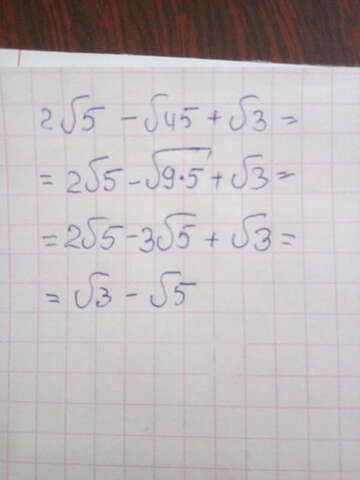 2√5 - √45 + √3 =
= 2√5 - √9·5 + √3 =
= 2√5 - 3√5 + √3 =
= √3 - √5